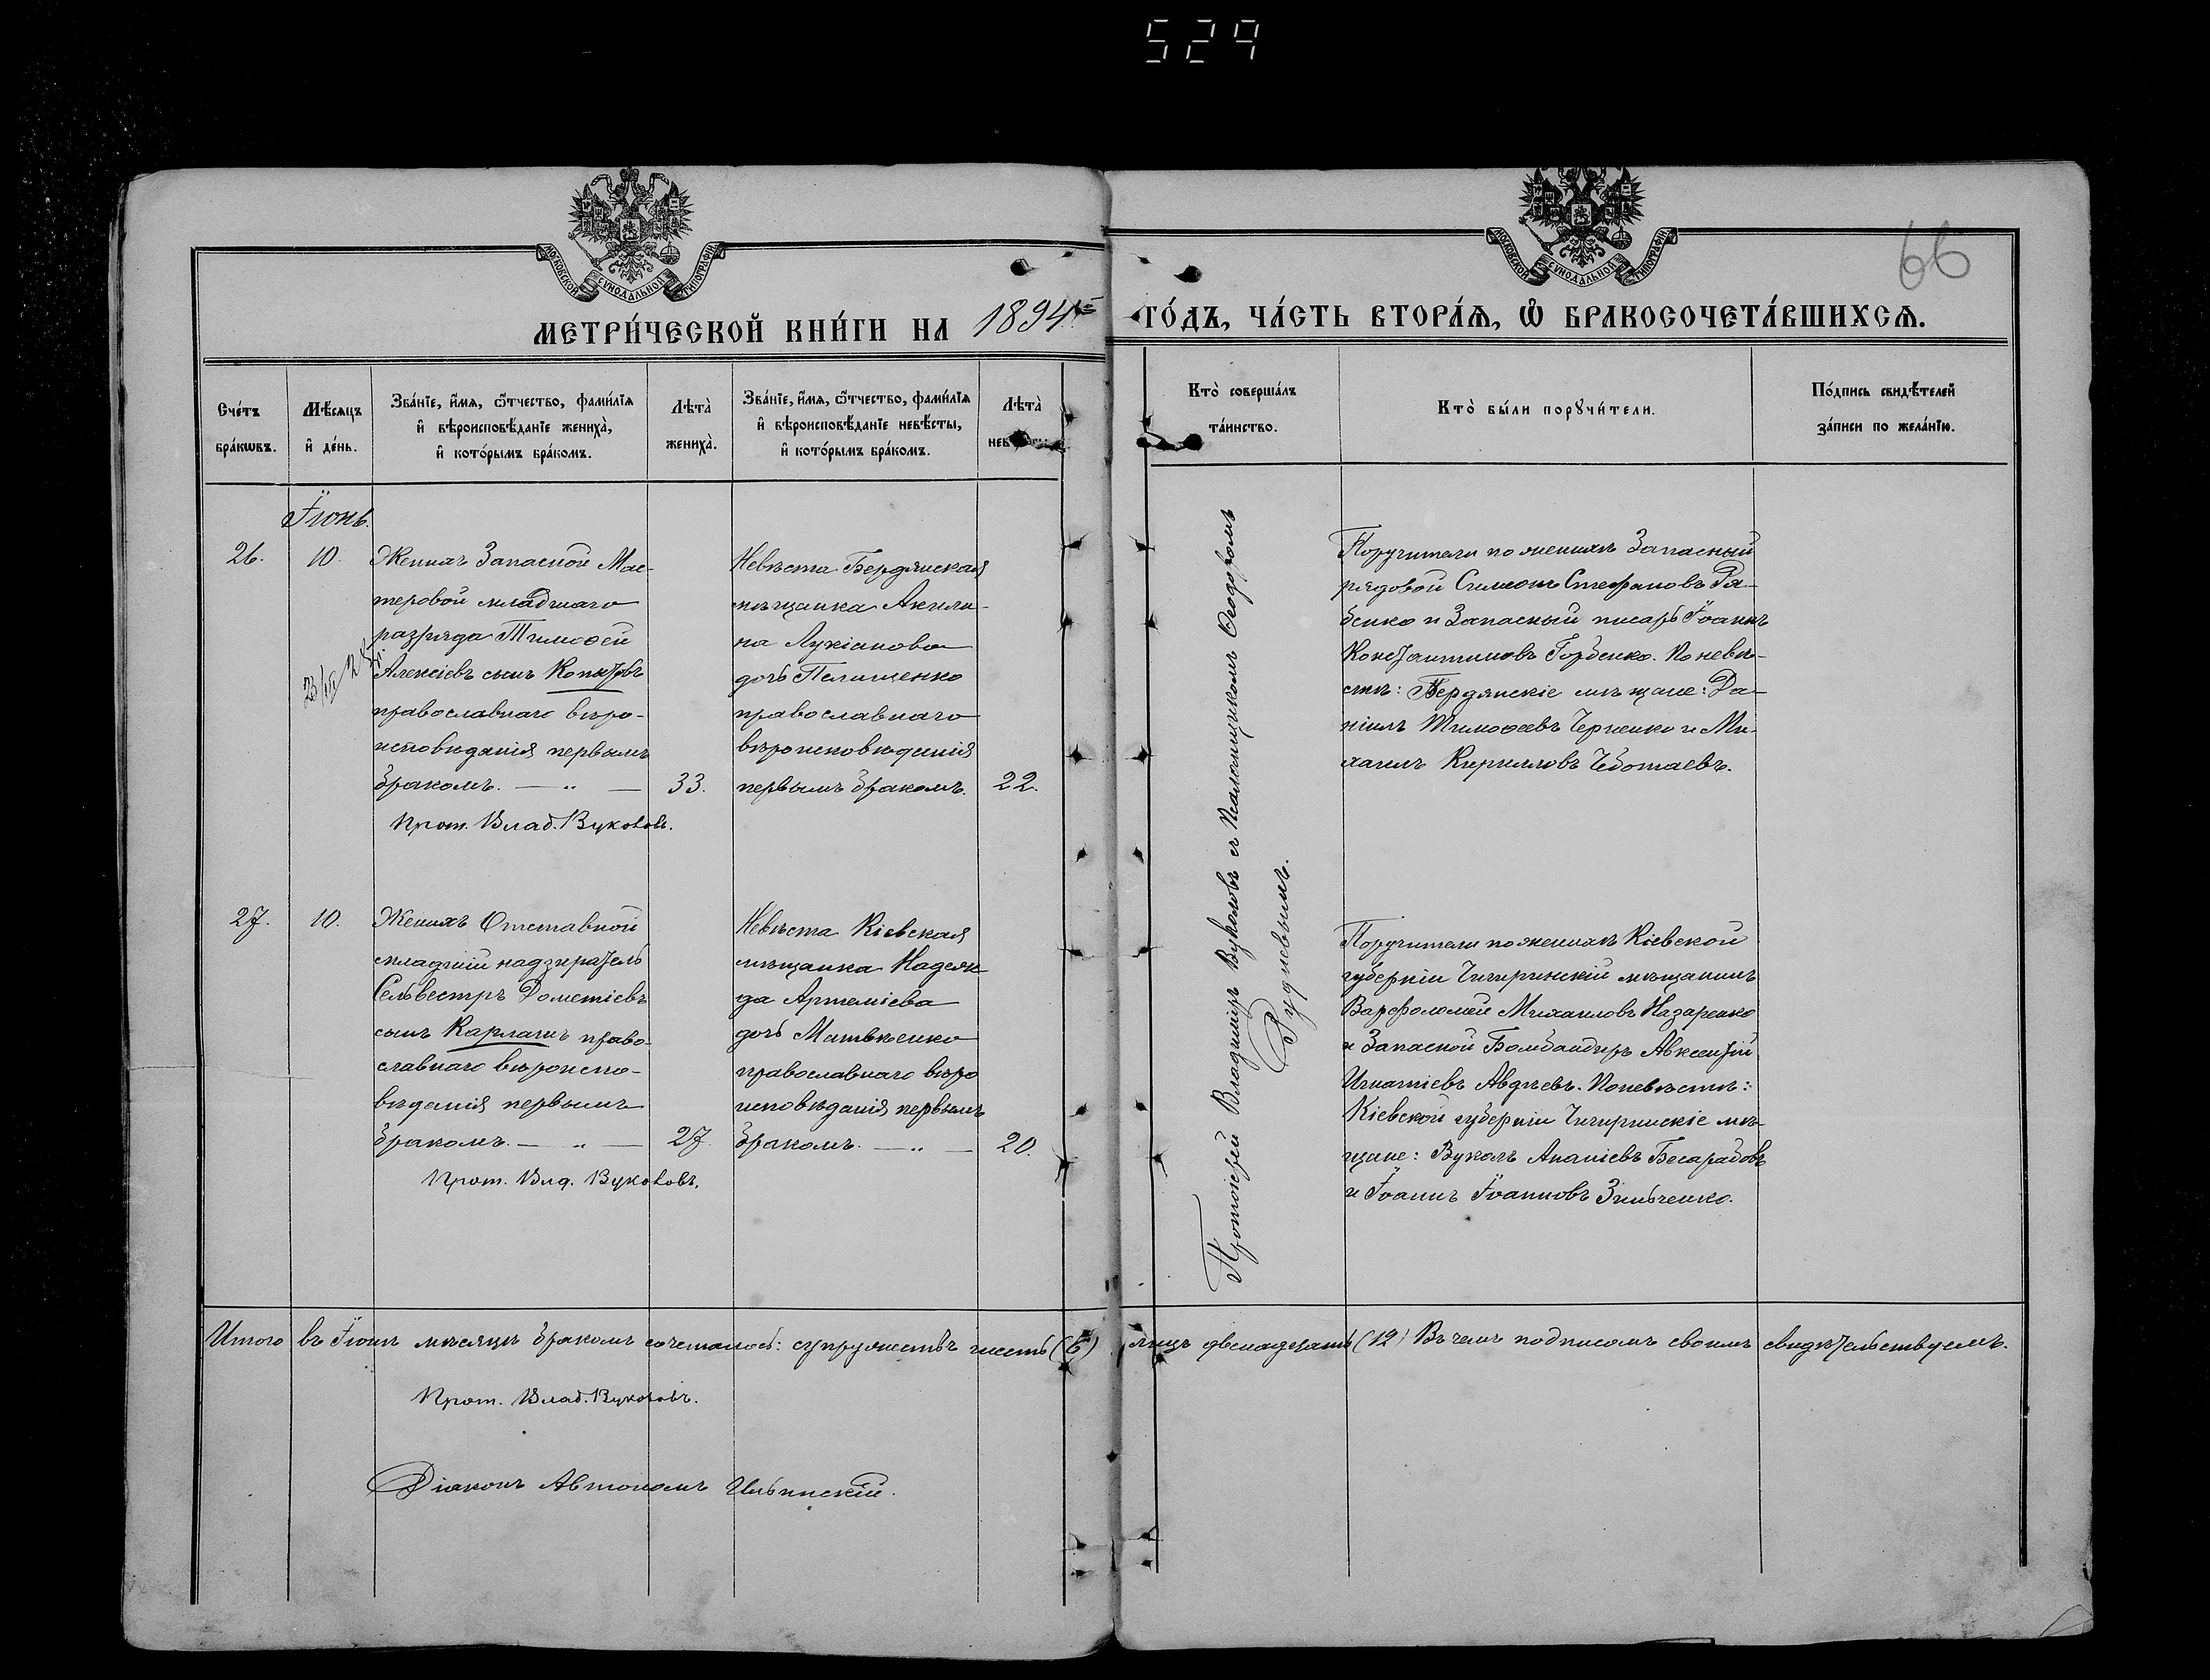 529
66
МОСКОВСКОЙ СУНОДАЛЬНОЙ ТИПОГРАФІИ
МОСКОВСКОЙ СУНОДАЛЬНОЙ ТИПОГРАФІИ
МЕТРИ́ЧЕСКОЙ КНИ́ГИ НА 1894й ГО́ДЪ, ЧА́СТЬ ВТОРА́Ѧ, Ѽ БРАКОСОЧЕТА́ВШИХСѦ.
Сче́тъ
бра́кѡвъ.
Мѣ́сяцъ
и҆ де́нь.
Зва́нїе, и҆́мя, ѻ҆́тчество, фами́лїя
и҆ вѣроисповѣ́данїе жениха̀,
и҆ кото́рымъ бра́комъ.
Лѣта̀
жениха̀.
Зва́нїе, и҆́мя, ѻ҆́тчество, фами́лїя
и҆ вѣроисповѣ́данїе невѣ́сты,
и҆ кото́рымъ бра́комъ.
Лѣта̀
нев
Кто̀ соверша́лъ
та́инство.
Кто̀ бы́ли порꙋчи́тели.
По́дпись свидѣ́телей
за́писи по жела́нїю.
Іюнь.
26.
10.
Женихъ Запасной Мас-
теровой младшаго
разряда Тимоѳей
Алексіевъ сынъ
православнаго вѣро-
исповѣданія первымъ
бракомъ. — „ —
33.
Прот. Влад. Вуколовъ.
Невѣста Бердянская
мѣщанка Акили-
на Лукіанова
дочь Пелищенко
православнаго
вѣроисповѣданія
первымъ бракомъ.
22.
Поручители по женихѣ Запасный
рядовой Симеонъ Стефановъ Ря-
бенко и Запасный писарь Іоаннъ
Константиновъ Горбенко. По невѣ-
стѣ: Бердянскіе мѣщане: Да-
ніилъ Тимоѳеевъ Черненко и Ми-
хаилъ Кирилловъ Чеботаевъ.
27.
10.
Женихъ Отставной
младшій надзиратель
Сельвестръ Дометіевъ
сынъ Карлашъ право-
славнаго вѣроиспо-
вѣданія первымъ
бракомъ. — „ —
27
Прот. Влд. Вуколовъ.
Невѣста Кіевская
мѣщанка Надеж-
да Артеміева
дочь Матвѣенко
православнаго вѣро
исповѣданія первымъ
бракомъ. — „ —
20.
Протоіерей Владиміръ Вуколовъ съ Псаломщикомъ Ѳеодоромъ
Рудневымъ.
Поручители по женихѣ Кіевской
губерніи Чигиринскій мѣщанинъ
Варфоломей Михаиловъ Назаренко
и Запасной Бомбандиръ Авксентій
Игнатіевъ Авдѣевъ. По невѣстѣ:
Кіевской губерніи Чигиринскіе мѣ-
щане: Вуколъ Ананіевъ Бесарабовъ
и Іоаннъ Іоанновъ Зинченко.
Итого въ Іюнѣ мѣсяцѣ бракомъ сочеталось: супружествъ шесть (6) лицъ двенадцать (12) Въ чемъ подписомъ своимъ свидѣтельствуемъ.
Прот. Влад. Вуколовъ.
Діаконъ Автономъ Ильинскій.